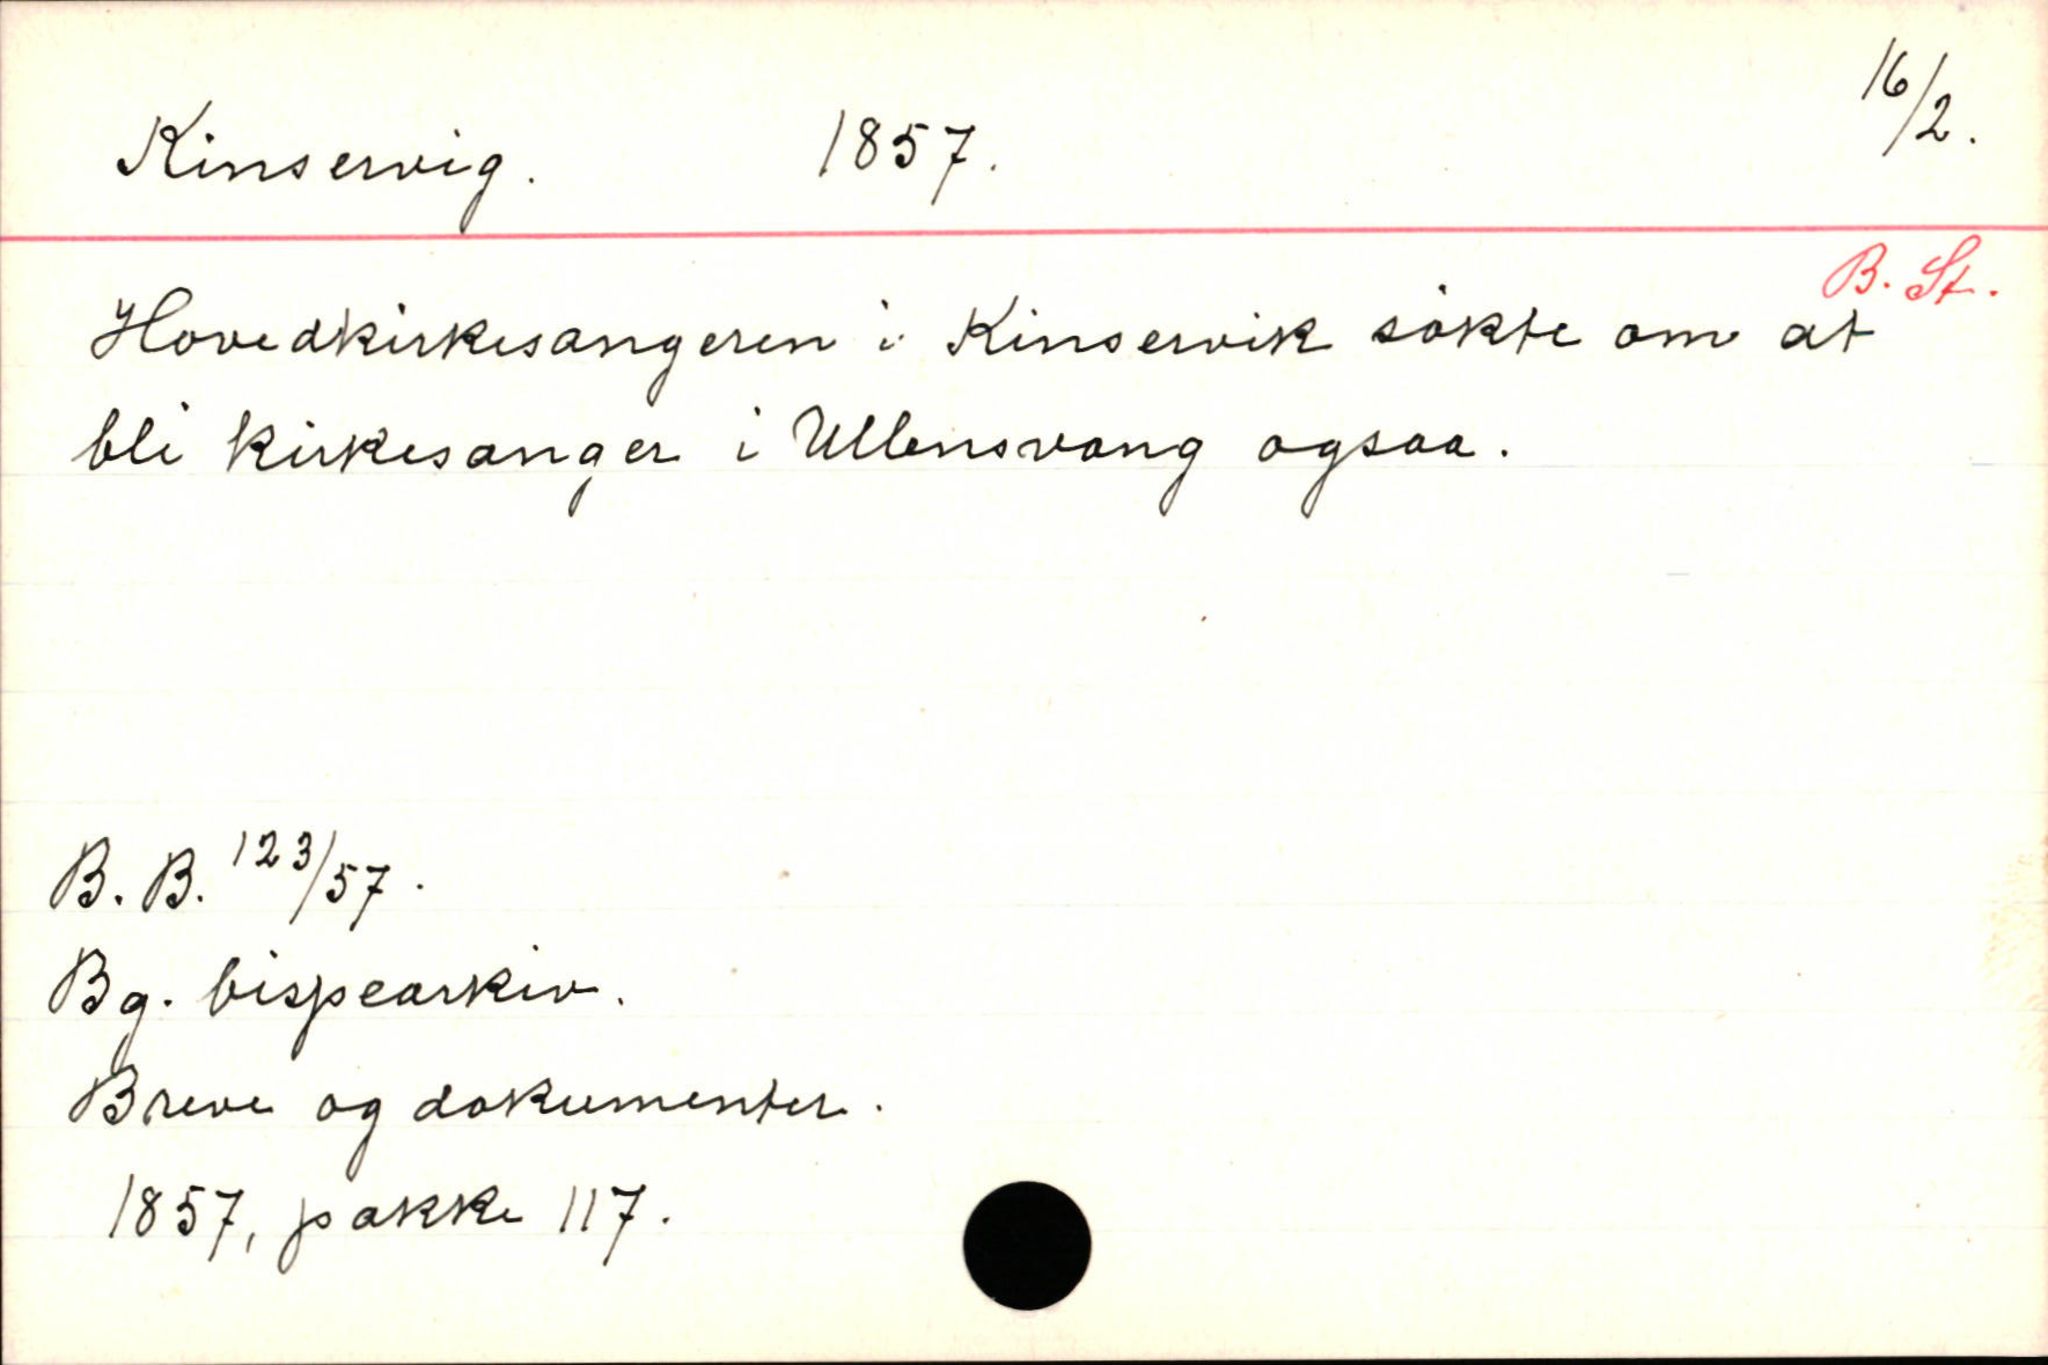 Kinservig. 1857. 16/2.
B. St.
Hovedkirkesangeren i Kinservik søkte om at
bli kirkesanger i Ullensvang ogsaa.
B. B. 123/57.
Bg. bispearkiv.
Breve og dokumenter.
1857, pakke 117.